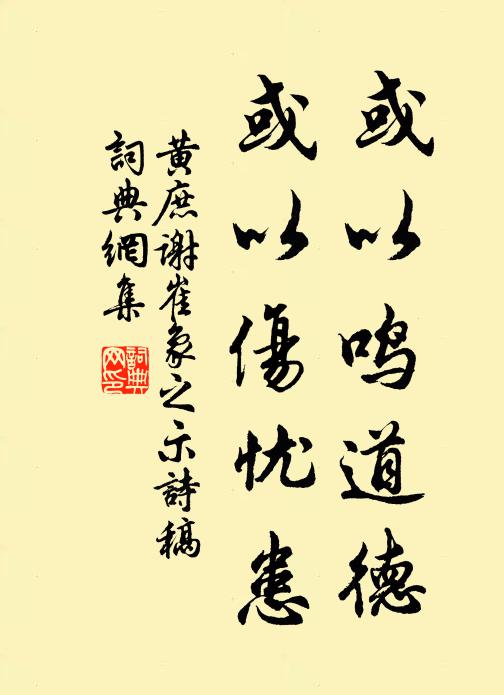 或以鸣道德
或以傷忧患
黄庶谢崔象之示詩稿
詞典網集
詞典网印